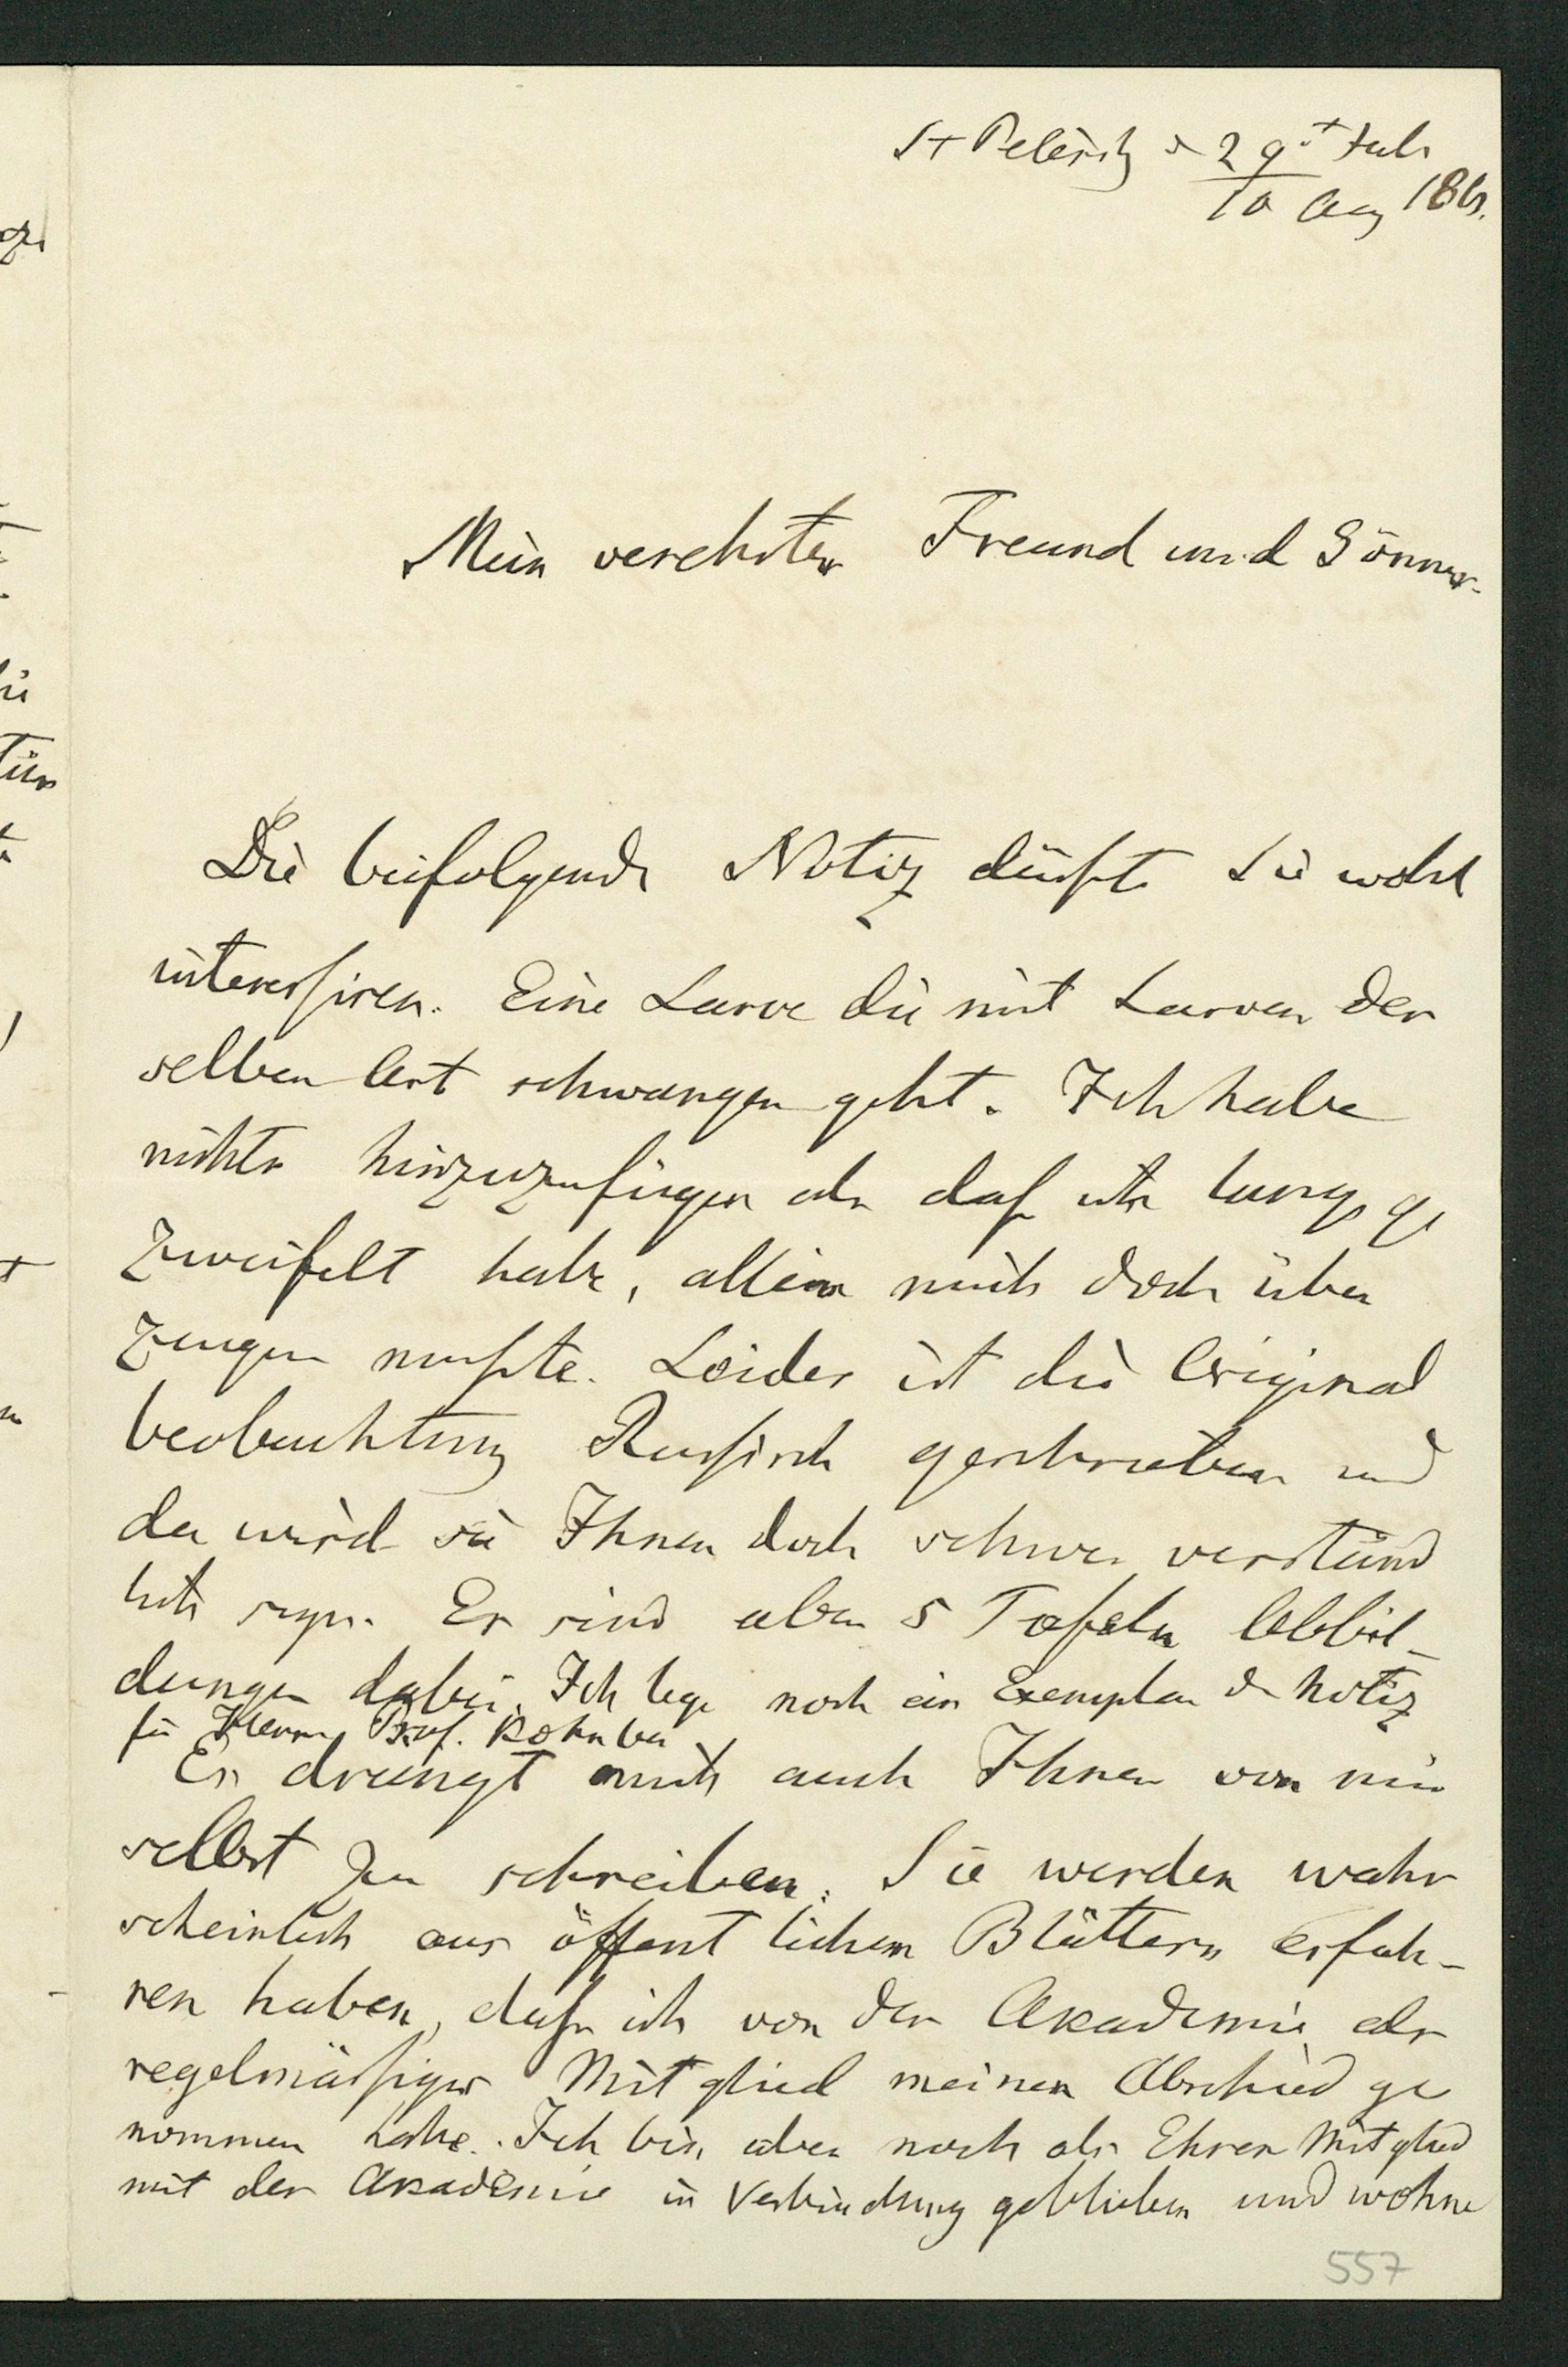 St Petersb d 29t Juli
10 Aug 186.
Mein verehrter Freund und Gönner.
Die beifolgende Notiz dürfte Sie wohl
interessiren. Eine Larve die mit Larven der
selben Art schwanger geht. Ich habe
nichts hinzuzufügen als daß ich lang ge
zweifelt habe, allein mich doch über
zeugen mußte. Leider ist die Original
beobachtung Russisch geschrieben und
da wird sie Ihnen doch schwer verständ
lich seyn. Es sind aber 5 Tafeln Abbil-
dungen dabei. Ich lege noch ein Exemplar d Notiz
für Herrn Prof. bei
Es drängt mich auch Ihnen von mir
selbst zu schreiben. Sie werden wahr
scheinlich aus öffentlichen Blättern erfah-
ren haben, daß ich von der Akademie als
regelmäßiges Mitglied meinen Abschied ge
nommen habe. Ich bin aber noch als Ehren Mitglied
mit der Akademie in Verbindung geblieben und wohne
557